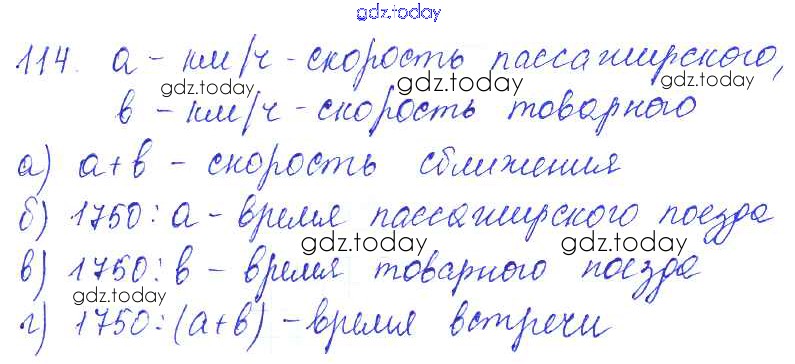 gdz.today
114. а - км/ч - скорость пассажирского,
gdz.today gdz.today
в - км/ч - скорость товарного
а) а+в - скорость сближения
б) 1750:а - время пассажирского поезда
gdz.today gdz.today
в) 1750:в - время товарного поезда
gdz.today
г) 1750:(а+в) - время встречи